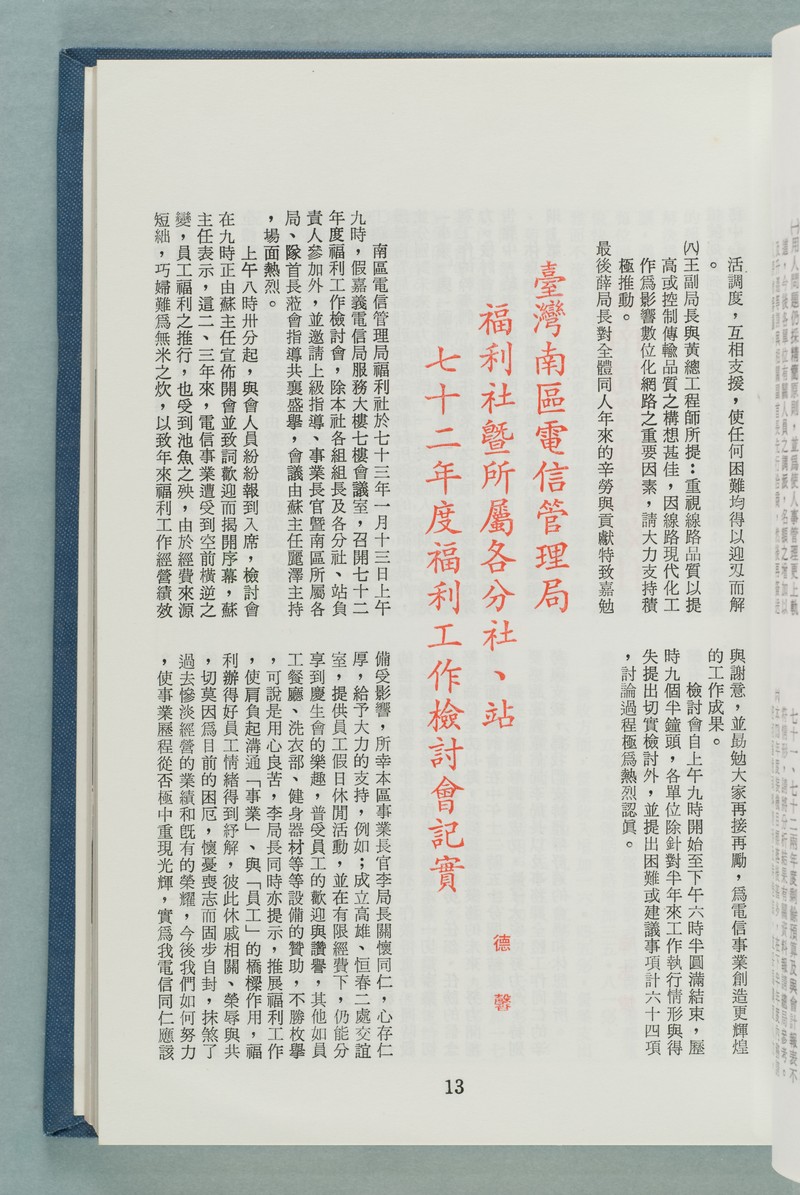 活調度，互相支援，使任何困難均得以迎刃而解
。
㈧王副局長與黃總工程師所提：重視線路品質以提
高或控制傳輸品質之構想甚佳，因線路現代化工
作為影響數位化網路之重要因素，請大力支持積
極推動。
最後薛局長對全體同人年來的辛勞與貢獻特致嘉勉
與謝意，並勗勉大家再接再勵，為電信事業創造更輝煌
的工作成果。
檢討會自上午九時開始至下午六時半圓滿結束，歷
時九個半鐘頭，各單位除針對半年來工作執行情形與得
失提出切實檢討外，並提出困難或建議事項計六十四項
，討論過程極為熱烈認眞。
臺灣南區電信管理局
福利社暨所屬各分社、站
七十二年度福利工作檢討會記實
德馨
南區電信管理局福利社於七十三年一月十三日上午
九時，假嘉義電信局服務大樓七樓會議室，召開七十二
年度福利工作檢討會，除本社各組組長及各分社、站負
責人參加外，並邀請上級指導、事業長官暨南區所屬各
局、隊首長蒞會指導共襄盛擧，會議由蘇主任麗澤主持
，場面熱烈。
上午八時卅分起，與會人員紛紛報到入席，檢討會
在九時正由蘇主任宣佈開會並致詞歡迎而揭開序幕，蘇
主任表示，這二、三年來，電信事業遭受到空前橫逆之
變，員工福利之推行，也受到池魚之殃，由於經費來源
短絀，巧婦難為無米之炊，以致年來福利工作經營績效
備受影響，所幸本區事業長官李局長關懷同仁，心存仁
厚，給予大力的支持，例如；成立高雄、恒春二處交誼
室，提供員工假日休閒活動，並在有限經費下，仍能分
享到慶生會的樂趣，普受員工的歡迎與讚譽，其他如員
工餐廳、洗衣部、健身器材等等設備的贊助，不勝枚擧
，可說是用心良苦，李局長同時亦提示，推展福利工作
，使肩負起溝通「事業」、與「員工」的橋樑作用，福
利辦得好員工情緒得到紓解，彼此休戚相關、榮辱與共
，切莫因為目前的困厄，懷憂喪志而固步自封，抹煞了
過去慘淡經營的業績和既有的榮耀，今後我們如何努力
，使事業歷程從否極中重現光輝，實為我電信同仁應該
13